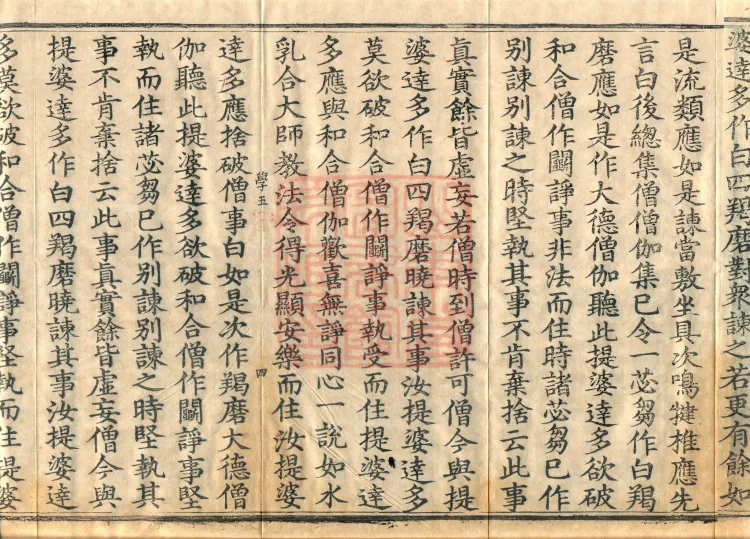 婆達多作白四羯磨對衆諫之若更有餘如
是流類應如是諫當敷坐具次鳴犍椎應先
言白後總集僧僧伽集已令一苾芻作白羯
磨應如是作大德僧伽聽此提婆達多欲破
和合僧作鬬諍事非法而住時諸苾芻已作
別諫別諫之時堅執其事不肯棄捨云此事
眞實餘皆虛妄若僧時到僧許可僧今與提
婆達多作白四羯磨曉諫其事汝提婆達多
莫欲破和合僧作鬬諍事執受而住提婆達
多應與和合僧伽歡喜無諍同心一說如水
乳合大師教法令得光顯安樂而住汝提婆
學五
四
達多應捨破僧事白如是次作羯磨大德僧
伽聽此提婆達多欲破和合僧作鬬諍事堅
執而住諸苾芻已作別諫別諫之時堅執其
事不肯棄捨云此事眞實餘皆虛妄僧今與
提婆達多作白四羯磨曉諫其事汝提婆達
多莫欲破和合僧作鬬諍事堅執而住提婆